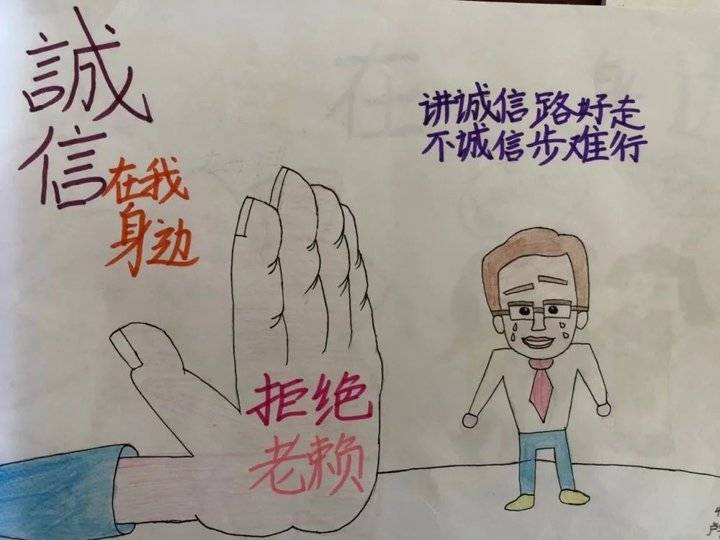 誠信
在我
身边
讲诚信路好走
不诚信步难行
拒绝
老赖